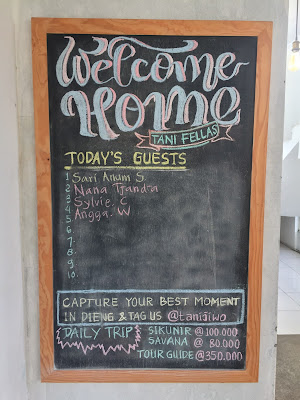 Welcome
Home
TANI FELLAS
TODAY'S GUESTS
1 Sari Anum S
2 Nana Tjandra
3 Sylvie. C
4 Angga. W
5
6.
7.
8.
9.
10.
CAPTURE YOUR BEST MOMENT
IN DIENG & TAG US @tanijiwo
DAILY TRIP
SIKUNIR @100.000
SAVANA @ 80.000
TOUR GUIDE @350.000